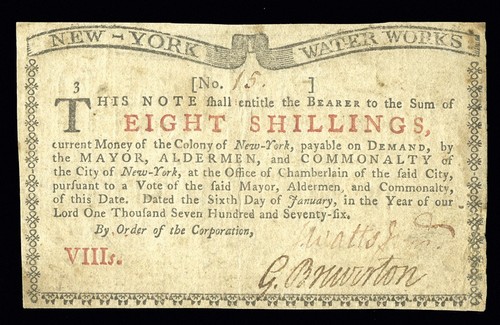 NEW-YORK WATER WORKS
[No. 15. ]
3
THIS NOTE shall entitle the BEARER to the Sum of
EIGHT SHILLINGS,
current Money of the Colony of New-York, payable on DEMAND, by
the MAYOR, ALDERMEN, and COMMONALTY of
the City of New-York, at the Office of Chamberlain of the said City,
pursuant to a Vote of the said Mayor, Aldermen, and Commonalty,
of this Date. Dated the Sixth Day of January, in the Year of our
Lord One Thousand Seven Hundred and Seventy-six.
By Order of the Corporation,
Watts
VIIIs.
G. Brewerton